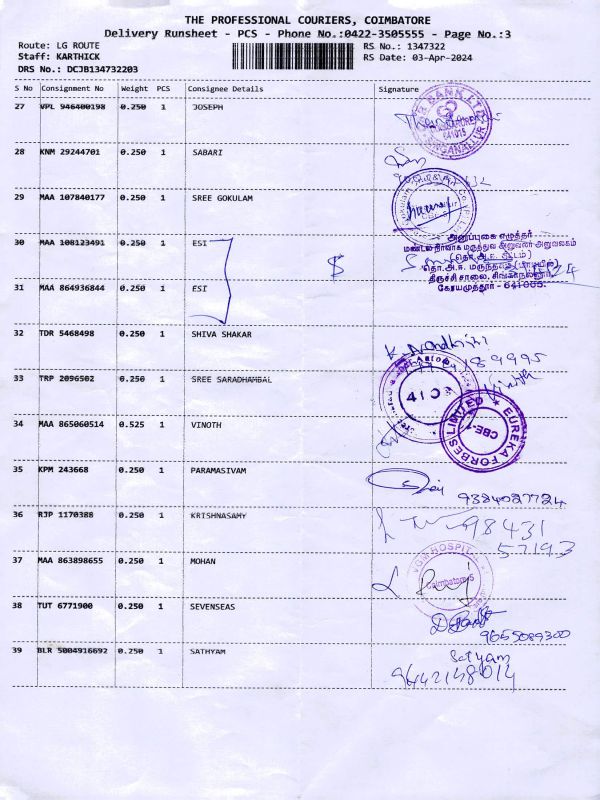 THE PROFESSIONAL COURIERS, COIMBATORE
Delivery Runsheet - PCS - Phone No.:0422-3505555 - Page No.:3
Route: LG ROUTE RS No.: 1347322
Staff: KARTHICK RS Date: 03-Apr-2024
DRS No.: DCJB134732203
S No Consignment No Weight PCS Consignee Details Signature
27 VPL 946400198 0.250 1 JOSEPH
641015
28 KNM 29244701 0.250 1 SABARI
29 MAA 107840177 0.250 1 SREE GOKULAM
30 MAA 108123491 0.250 1 ESI
அனுப்புகை எழுத்தர்
மண்டல நிர்வாக மருத்துவ அலுவலர் அலுவலகம்
31 MAA 864936844 0.250 1 ESI
திருச்சி சாலை, சிங்காநல்லூர்
கோயமுத்தூர் - 641005.
32 TDR 5468498 0.250 1 SHIVA SHAKAR
33 TRP 2096502 0.250 1 SREE SARADHAMBAL
Vinoth
34 MAA 865060514 0.525 1 VINOTH
EUREKA FORBES LIMITED
CBE-1
35 KPM 243668 0.250 1 PARAMASIVAM
9384027724
36 RJP 1170388 0.250 1 KRISHNASAMY
98431
57193
37 MAA 863898655 0.250 1 MOHAN
Coimbatore-5
38 TUT 6771900 0.250 1 SEVENSEAS
9655089300
39 BLR 5004916692 0.250 1 SATHYAM
Satyam
9442148014